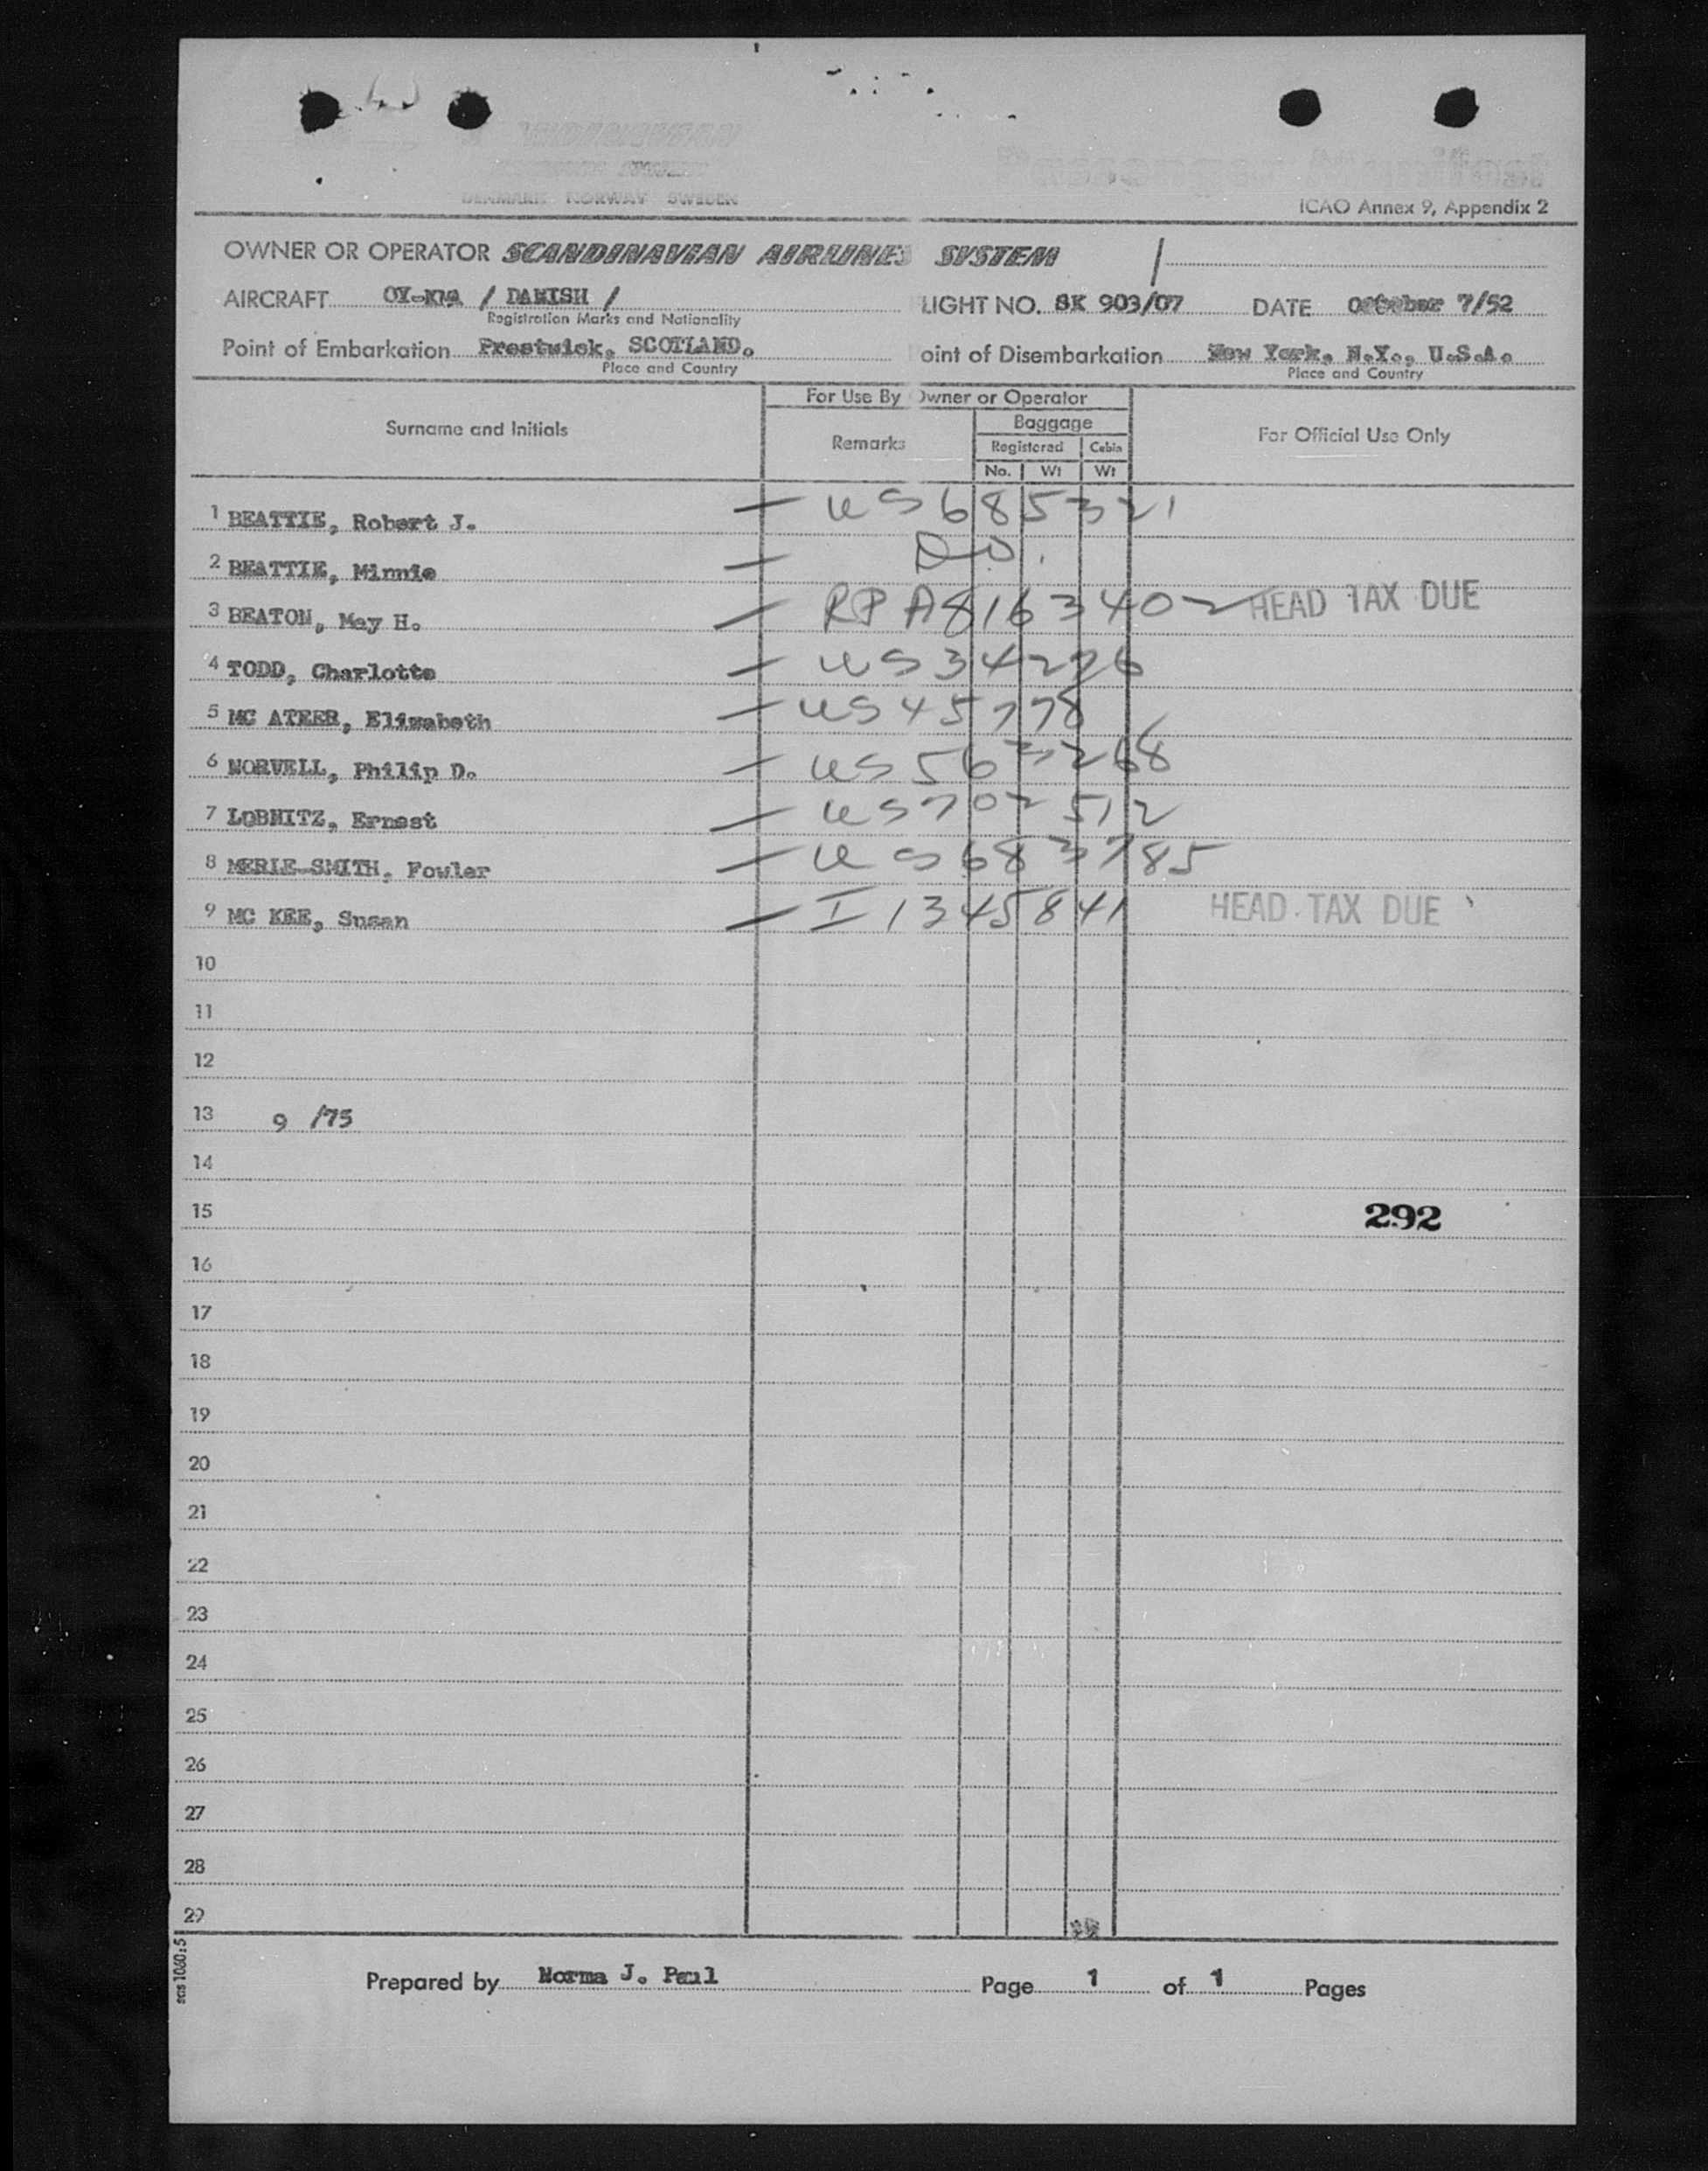 DENMARK NORWAY SWEDEN
ICAO Annex 9, Appendix 2
OWNER OR OPERATOR SCANDINAVIAN AIRLINES SYSTEM
AIRCRAFT / DANISH / LIGHT NO. SK 903/07 DATE October 7/52
Registration Marks and Nationality
Point of Embarkation Prestwick, SCOTLAND. oint of Disembarkation New York, N.Y., U.S.A.
Place and Country Place and Country
For Use By Owner or Operator
Surname and Initials Remarks Baggage For Official Use Only
Registered Cabin
No. Wt Wt
1 BEATTIE, Robert J. — US 685321
2 BEATTIE, Minnie — DO.
3 BEATON, May H. — RP A8163402 HEAD TAX DUE
4 TODD, Charlotte — US 34276
5 MC ATEER, Elizabeth — US 45778
6 NORVELL, Philip D. — US 563268
7 LOBNITZ, Ernest — US 702512
8 MERLE-SMITH, Fowler — US 683785
9 MC KEE, Susan — I 1345841 HEAD TAX DUE
10
11
12
13 9 /75
14
15 292
16
17
18
19
20
21
22
23
24
25
26
27
28
29
sas 1060:5
Prepared by Norma J. Paul Page 1 of 1 Pages